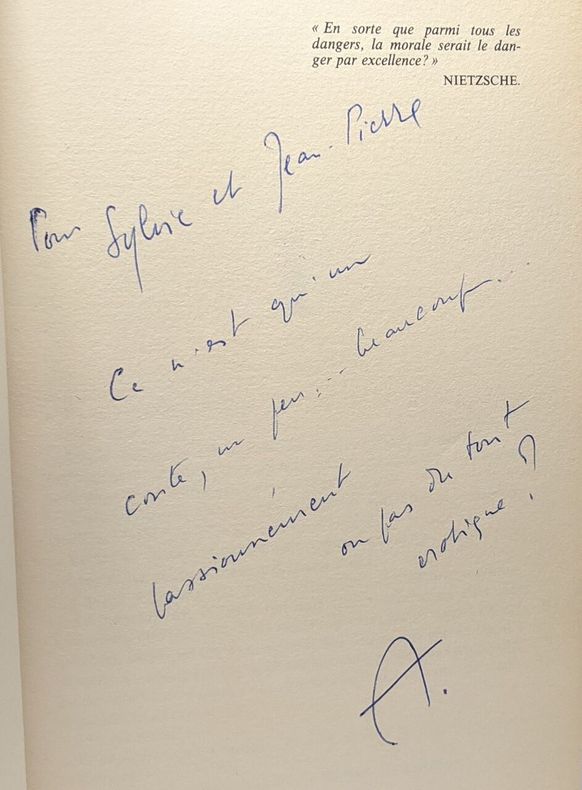 « En sorte que parmi tous les
dangers, la morale serait le dan-
ger par excellence? »
NIETZSCHE.
Pour Sylvie et Jean-Pierre
Ce n'est qu'un
conte, un peu... beaucoup...
passionnément
ou pas du tout
érotique ?
A.